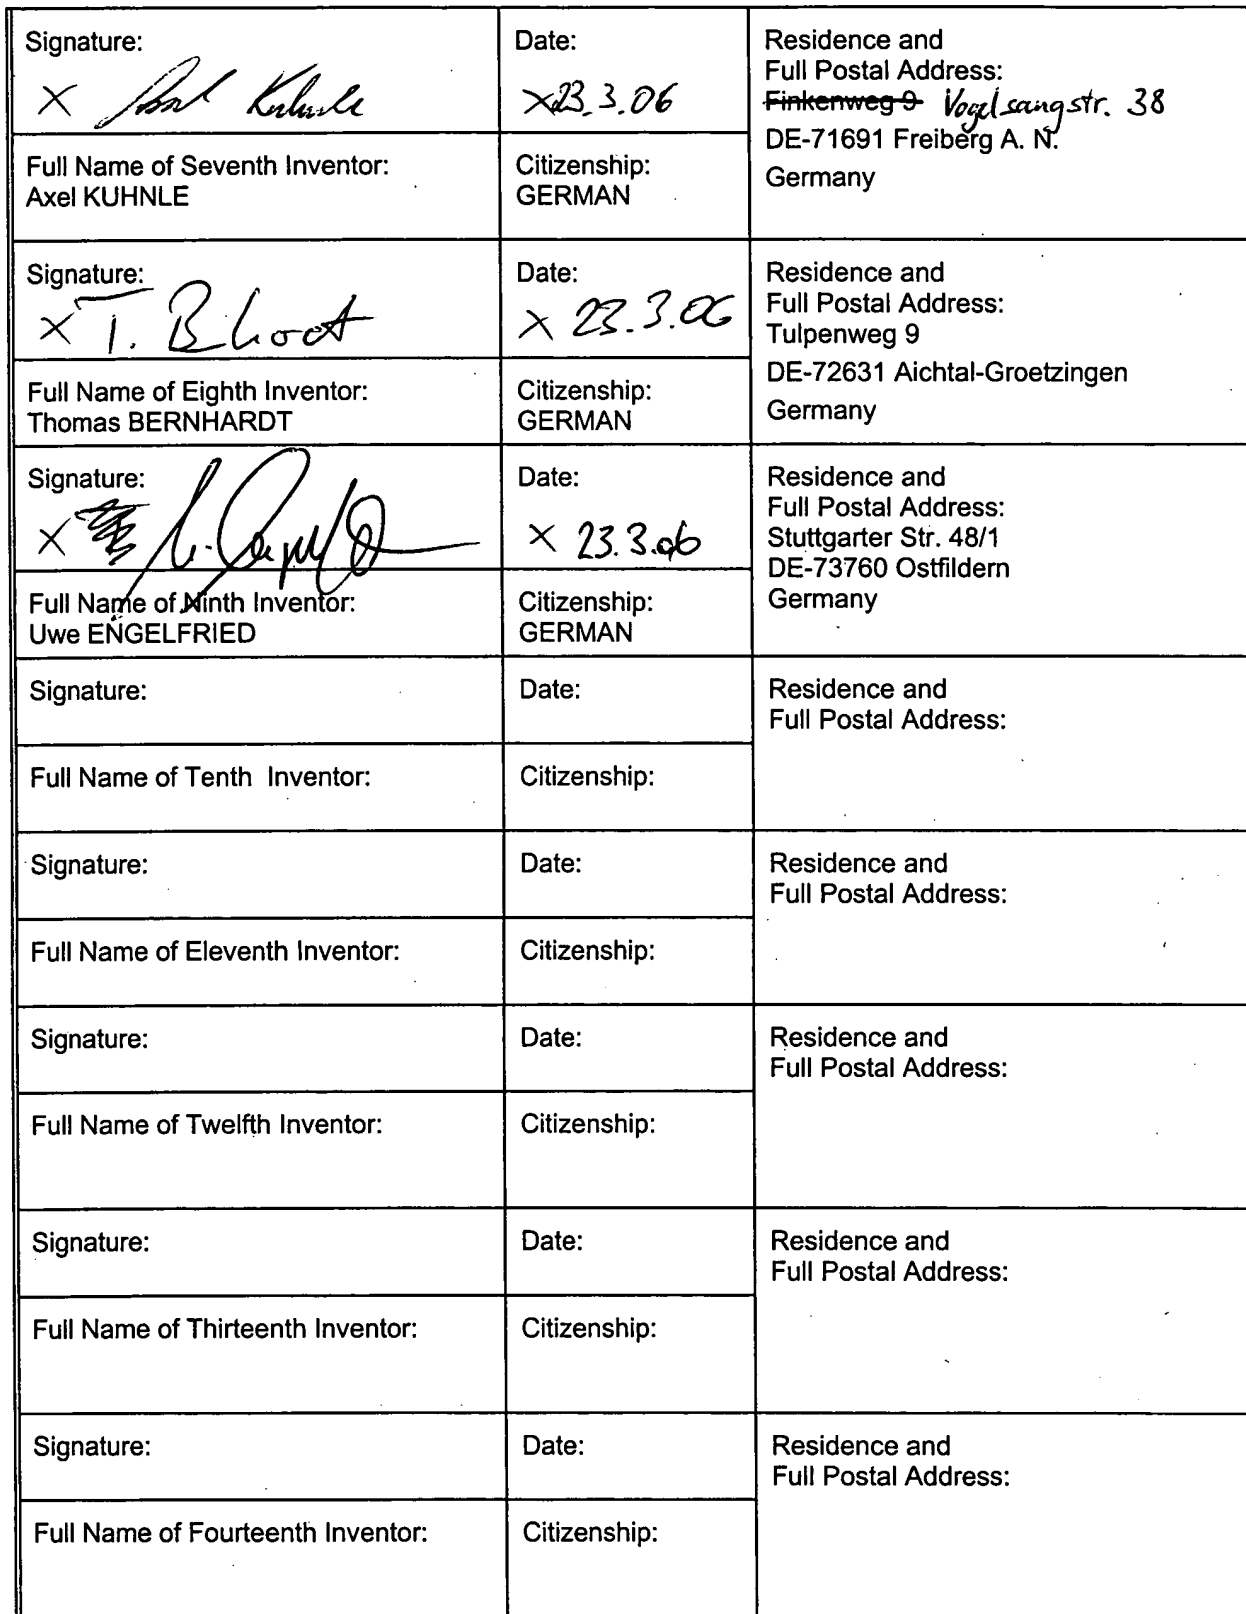 Signature:
X Axel Kuhnle
Date:
X 23.3.06
Residence and
Full Postal Address:
Finkenweg 9 Vogelsangstr. 38
DE-71691 Freiberg A. N.
Germany
Full Name of Seventh Inventor:
Axel KUHNLE
Citizenship:
GERMAN
Signature:
X T.
Date:
X 23.3.06
Residence and
Full Postal Address:
Tulpenweg 9
DE-72631 Aichtal-Groetzingen
Germany
Full Name of Eighth Inventor:
Thomas BERNHARDT
Citizenship:
GERMAN
Signature:
X
Date:
X 23.3.06
Residence and
Full Postal Address:
Stuttgarter Str. 48/1
DE-73760 Ostfildern
Germany
Full Name of Ninth Inventor:
Uwe ENGELFRIED
Citizenship:
GERMAN
Signature:
Date:
Residence and
Full Postal Address:
Full Name of Tenth Inventor:
Citizenship:
Signature:
Date:
Residence and
Full Postal Address:
Full Name of Eleventh Inventor:
Citizenship:
Signature:
Date:
Residence and
Full Postal Address:
Full Name of Twelfth Inventor:
Citizenship:
Signature:
Date:
Residence and
Full Postal Address:
Full Name of Thirteenth Inventor:
Citizenship:
Signature:
Date:
Residence and
Full Postal Address:
Full Name of Fourteenth Inventor:
Citizenship: